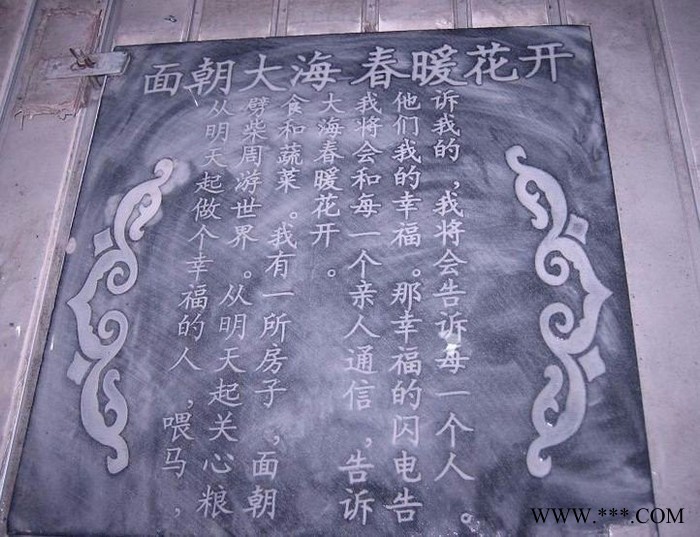 面朝大海 春暖花开
从明天起做个幸福的人，喂马，
劈柴周游世界。从明天起关心粮
食和蔬菜。我有一所房子，面朝
大海春暖花开。
我将会和每一个亲人通信，告诉
他们我的幸福。那幸福的闪电告
诉我的，我将会告诉每一个人。
WWW.***.COM